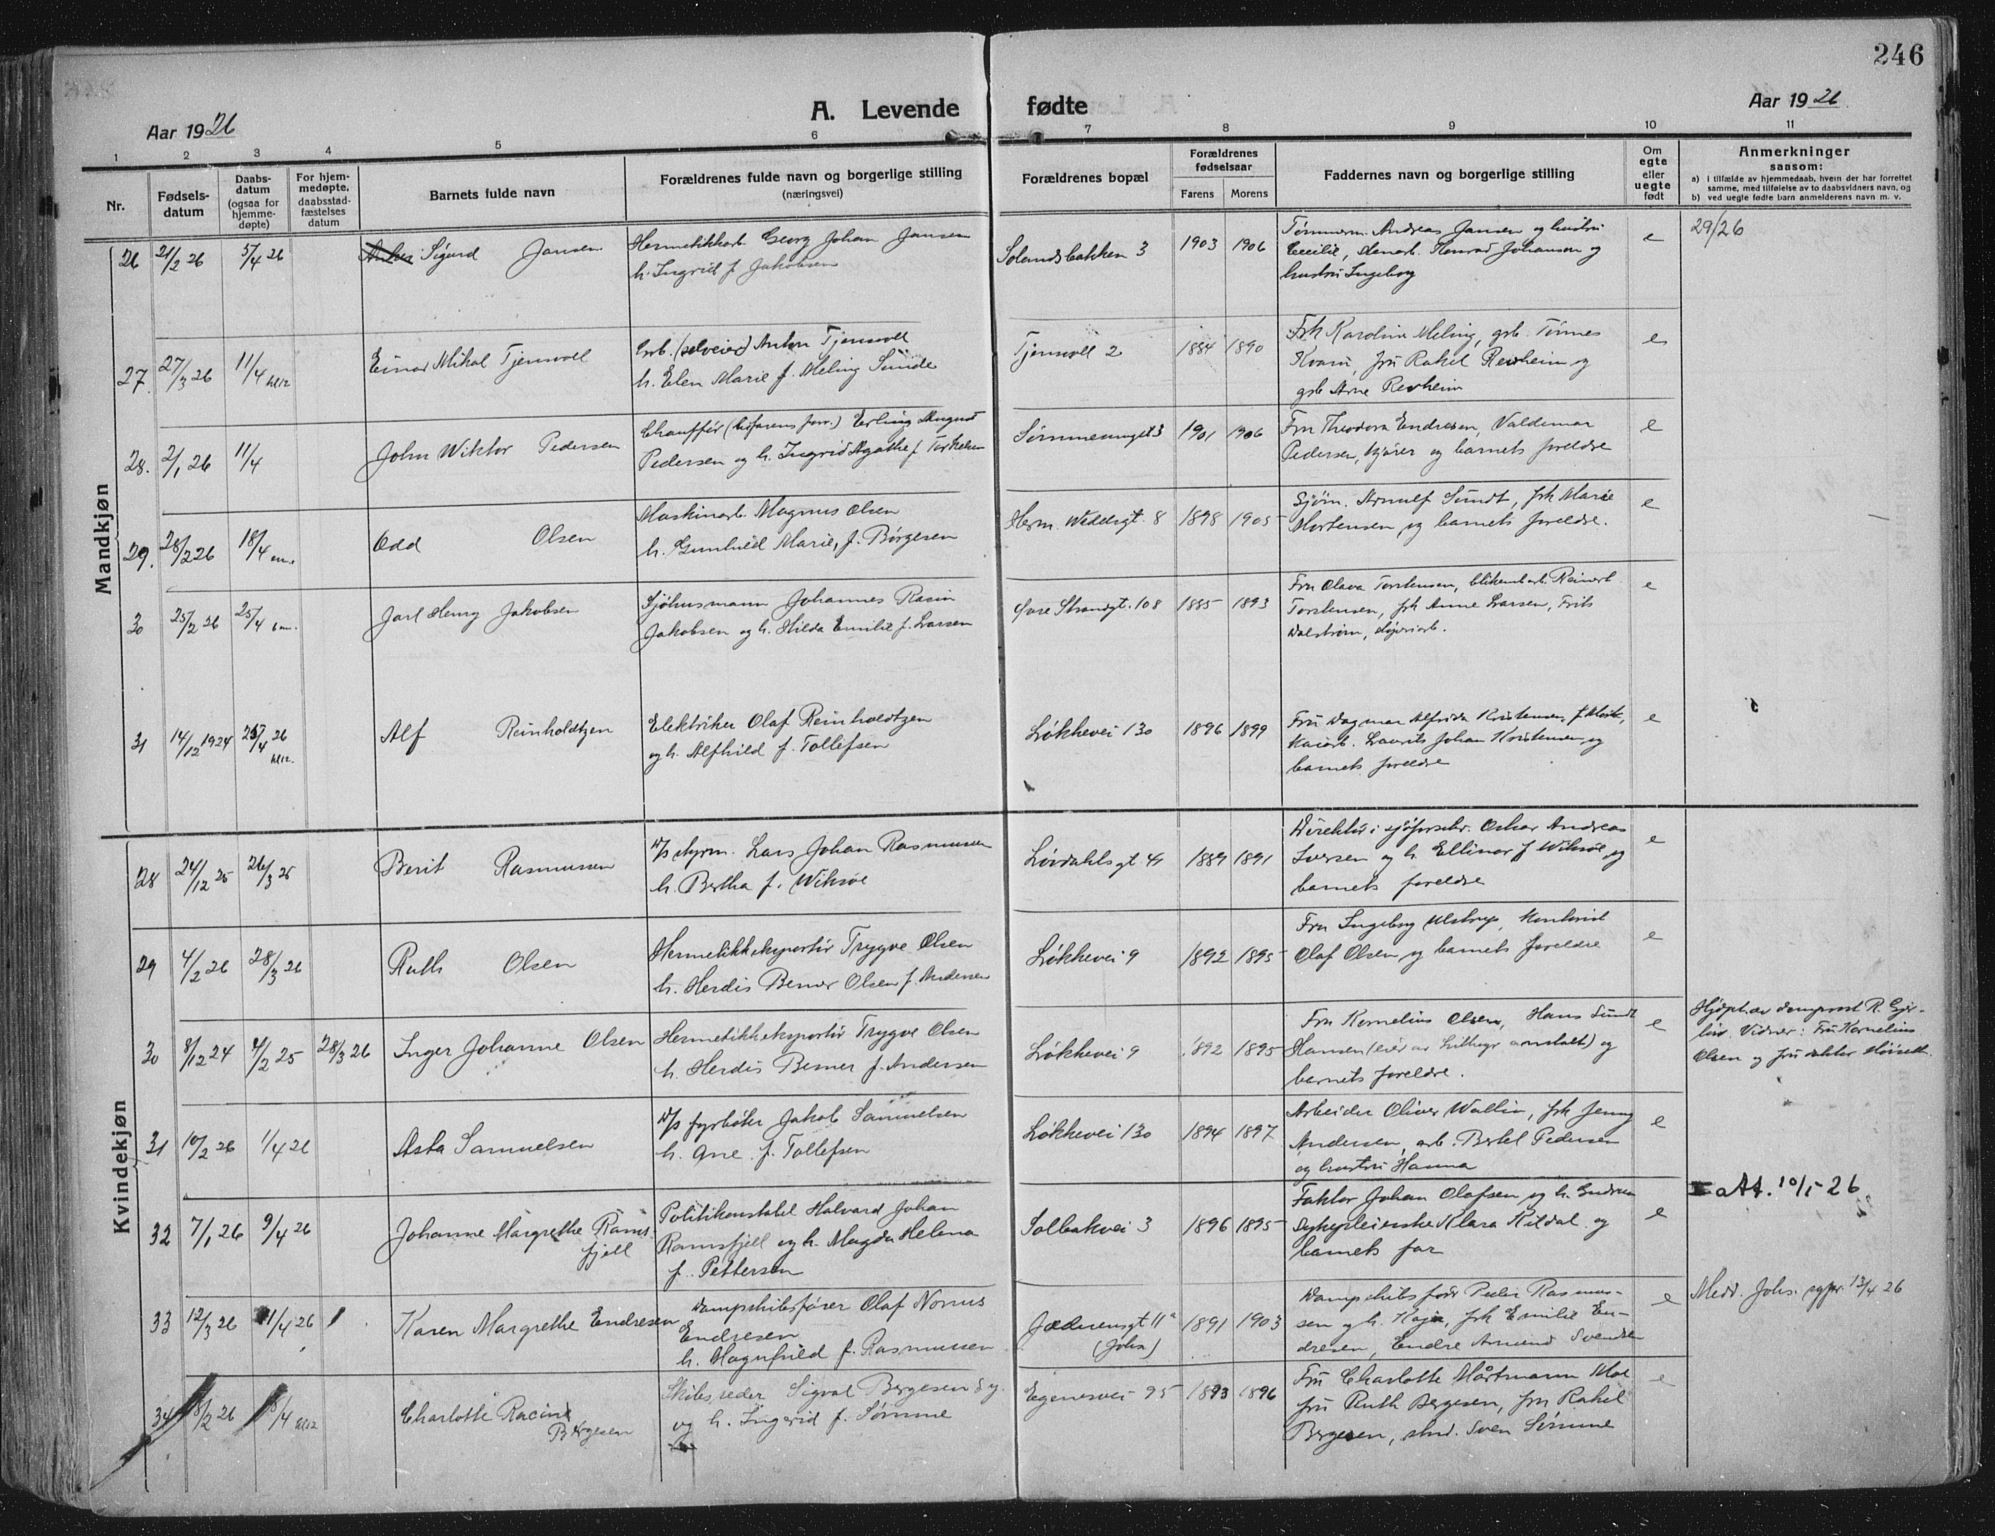 246
A. Levende fødte
Aar 1926
Aar 1926
1 2 3 4 5 6 7 8 9 10 11
Nr.
Fødsels-
datum
Daabs-
datum
(ogsaa for
hjemme-
døpte)
For hjem-
medøpte,
daabsstad-
fæstelses
datum
Barnets fulde navn
Forældrenes fulde navn og borgerlige stilling
(næringsvei)
Forældrenes bopæl
Forældrenes
fødselsaar
Farens Morens
Faddernes navn og borgerlige stilling
Om
egte
eller
uegte
født
Anmerkninger
saasom:
a) i tilfælde av hjemmedaab, hvem der har forrettet
samme, med tilføielse av to daabsvidners navn, og
b) ved uegte fødte barn anmelderens navn m. v.
Mandkjøn
26 21/2 26 5/4 26 Sigurd Jansen
Hermetikkarb. Georg Johan Jansen
h. Ingrid f. Jakobsen
Solandsbakken 3 1903 1906
Tømmerm. Andreas Jansen og hustru
Cecilie, Konrad Johansen og
hustru Ingeborg
e 29/26
27 27/3 26 11/4 Einar Mikal Tjensvoll
(selveier) Anton Tjensvoll
h. Elen Marie f. Meling Sunde
Tjensvoll 2 1884 1890
Frk Karoline Meling, grb. Tønnes
Kvam, fru Rakel Revheim og
grb Arne Revheim
e
28. 2/1 26 11/4 John Wiktor Pedersen
Chauffør Erling August
Pedersen og h. Ingrid Agathe f. Torkelsen
1901 1906
Fru Theodora Endresen, Valdemar
Pedersen, kjører og barnets foreldre
e
29. 28/2 26 18/4 Odd Olsen
Maskinarb. Magnus Olsen
h. Gunhild Marie, f. Børgesen
Herm. Wedelsgt. 8 1898 1905
Sjøm. Arnulf Sundt, frk Marie
Mortensen og barnets foreldre.
e
30 25/2 26 25/4 Jarl Henry Jakobsen
Sjøhusmann Johannes Rasin
Jakobsen og h. Hilda Emilie f. Larsen
Øvre Strandgt. 108 1885 1893
Fru Olava Torstensen, blikemb.arb. Reinert
Torstensen, frk Anne Larsen, Frits
Dalstrøm,
e
31 14/12 1924 25/4 26 Alf Reinholdtzen
Elektriker Olaf Reinholdtzen
og h. Alfhild f. Tollefsen
Løkkevei 130 1896 1899
Fru Dagmar Alfrida Kristensen,
Laurits Johan Kristensen og
barnets foreldre
e
Kvindekjøn
28 24/12 25 26/3 25 Berit Rasmussen
D/s styrm. Lars Johan Rasmussen
h. Bertha f. Wiksøe
Løvdahlsgt 1889 1891
Direktør i Oskar Andreas
Iversen og h. Ellinor f. Wiksøe og
barnets foreldre
e
29 4/2 26 28/3 26 Ruth Olsen
Hermetikkeksportør Trygve Olsen
h. Herdis Berner Olsen f. Andersen
Løkkevei 9 1892 1895
Fru Ingeborg Ulstrup, kontorist
Olaf Olsen og barnets foreldre
e
30 8/12 24 4/2 25 28/3 26 Inger Johanne Olsen
Hermetikkeksportør Trygve Olsen
h. Herdis Berner f. Andersen
Løkkevei 9 1892 1895
Fru Kornelius Olsen, Hans Sundt
Hansen (eier av anstalt) og
barnets foreldre.
e
Hjdpt. av domprost R.
Vidner: Fru Kornelius
Olsen og fru doktor
31 10/2 26 1/4 26 Asta Samuelsen
D/s fyrbøter Jakob Samuelsen
h. Ane f. Tollefsen
Løkkevei 130 1894 1897
Arbeider Oliver Wallin, frk Jenny
Andersen, arb. Bertel Pedersen
og hustru Hanna
e
32 7/1 26 9/4 26 Johanne Margrethe Rams
fjell
Politikonstabel Halvard Johan
Ramsfjell og h. Magda Helena
f. Pettersen
Solbakvei 3 1896 1895
Faktor Johan Olafsen og h. Gudrun
Sykepleierske Klara Kildal og
barnets far
e Att. 10/5 - 26
33 12/3 26 11/4 26 Karen Margrethe Endresen
Dampskibsfører Olaf Norvus
Endresen
h. Magnhild f. Rasmussen
Jædrensgt 11a
(Johs)
1891 1903
Dampskibsfører Peder Rasmus-
sen og h. Kaja, frk Emilie En-
dresen, Endre Amund Svendsen
e Medd. Johs. 13/4 26
34 8/2 26 18/4 Charlotte Racine
Bergesen
Skibsreder Sigval Bergesen d.y.
og h. Ingerid f. Sømme
Egenesvei 95 1893 1896
Fru Charlotte Mårtmann Moe
fru Ruth Bergesen, fru Rakel
Bergesen, stud. Sven Sømme
e